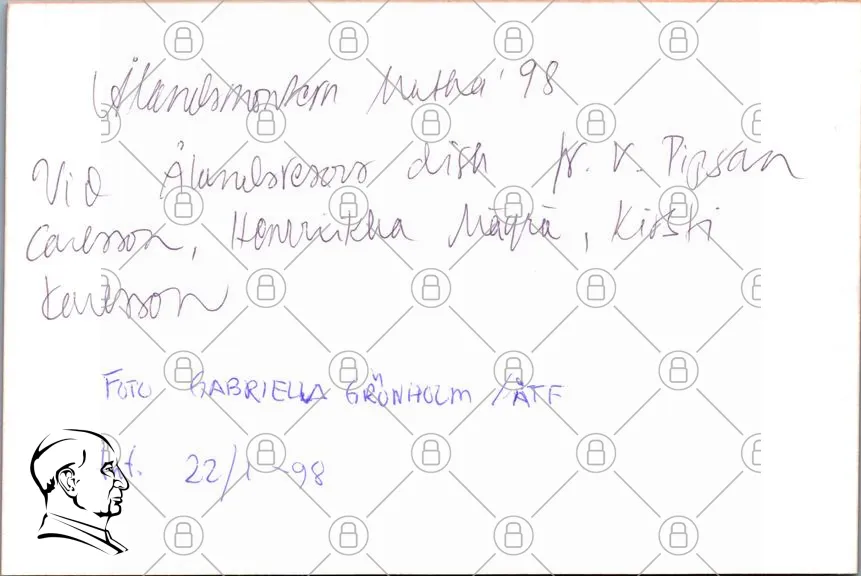 Ålandsmontern Matka '98
Vid Ålandsresors disk fr. v. Pipsan
Carlsson, Henriikka Mägrä, Kirsti
Karlsson
FOTO GABRIELLA GRÖNHOLM /ÅTF
22/1 -98